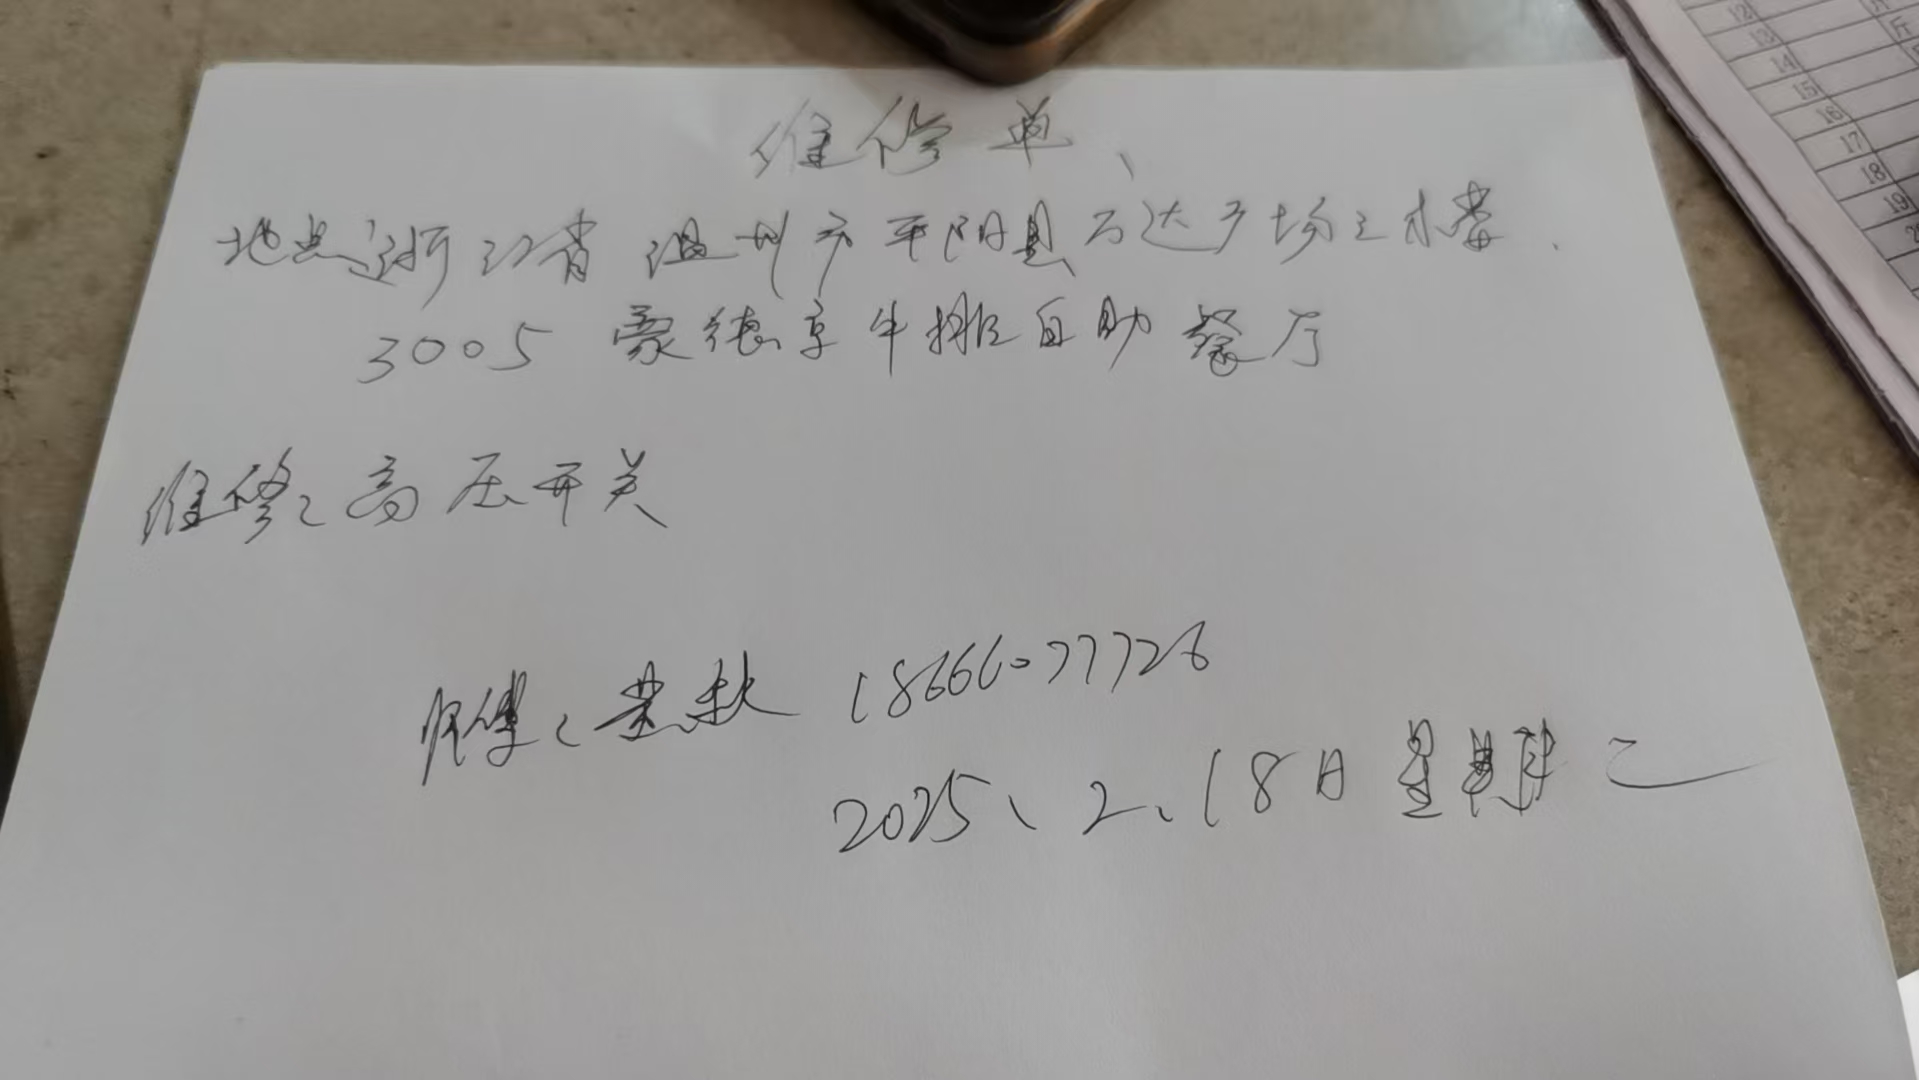 维修单、
地点:浙江省温州市平阳县万达广场三楼
3005 豪德亨牛排自助餐厅
维修:高压开关
师傅: 18666077726
2025、2、18日星期二
12
13
14
15
16
17
18
19